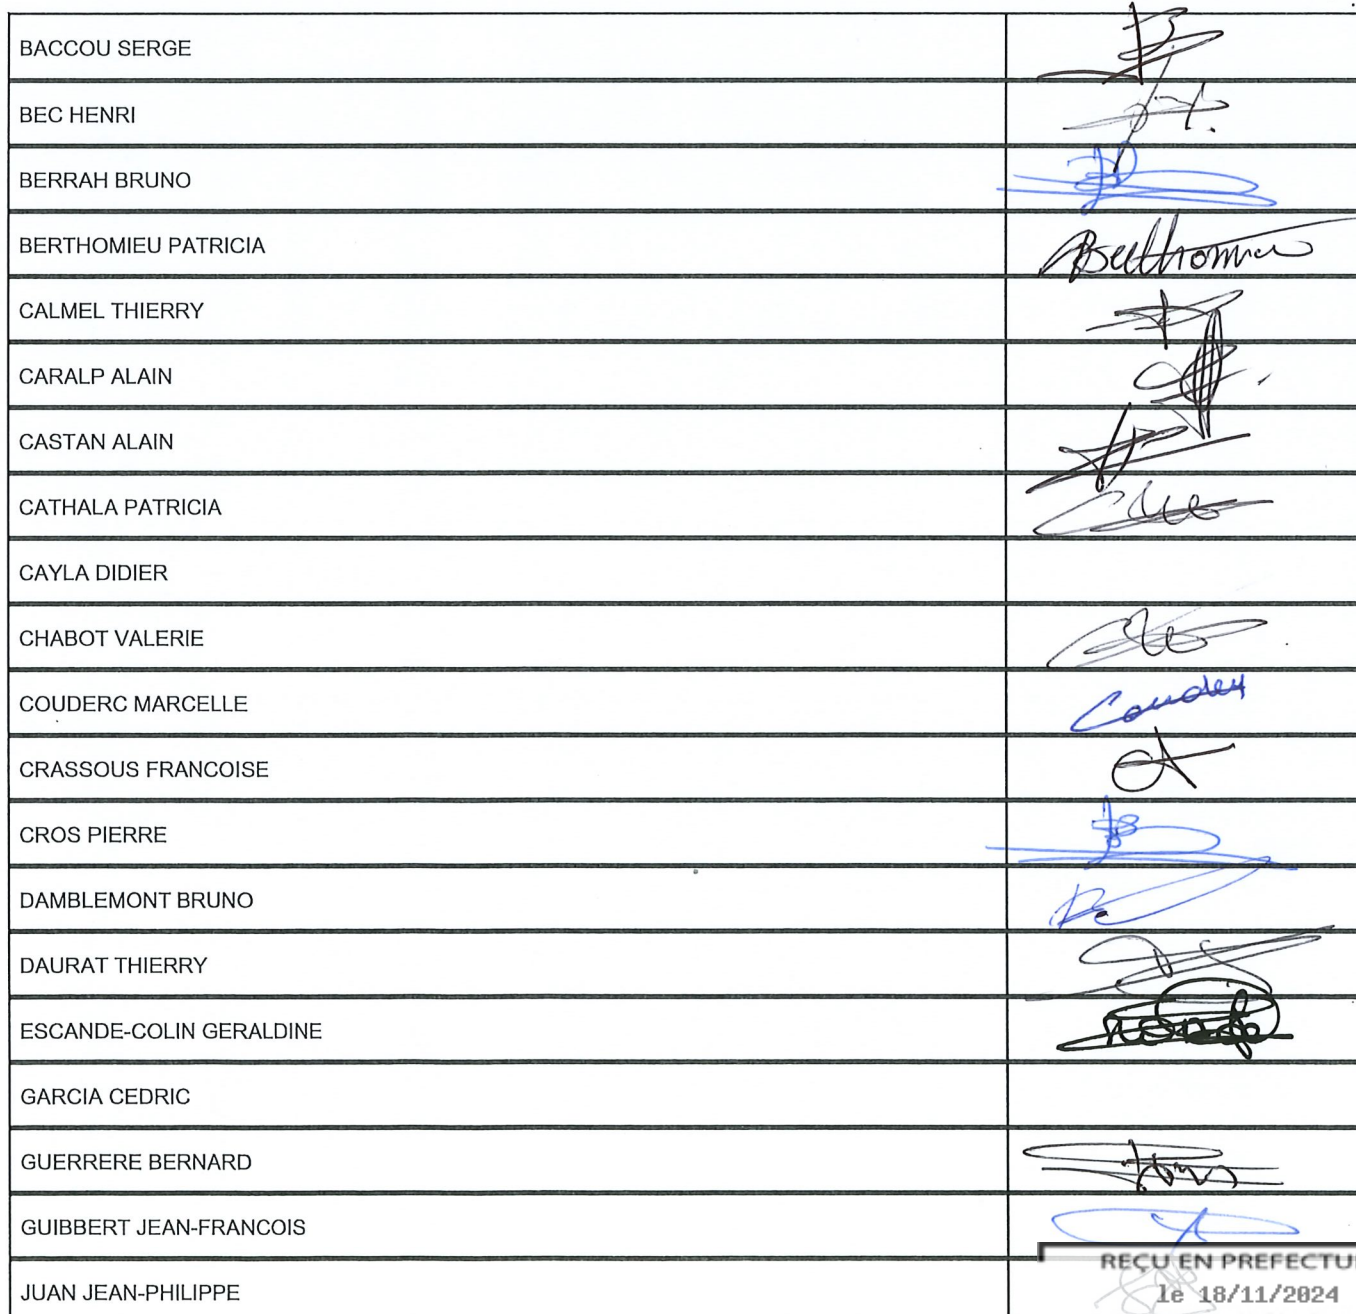 BACCOU SERGE
BEC HENRI
BERRAH BRUNO
BERTHOMIEU PATRICIA
CALMEL THIERRY
CARALP ALAIN
CASTAN ALAIN
CATHALA PATRICIA
CAYLA DIDIER
CHABOT VALERIE
COUDERC MARCELLE
CRASSOUS FRANCOISE
CROS PIERRE
DAMBLEMONT BRUNO
DAURAT THIERRY
ESCANDE-COLIN GERALDINE
GARCIA CEDRIC
GUERRERE BERNARD
GUIBBERT JEAN-FRANCOIS
REÇU EN PREFECTU
JUAN JEAN-PHILIPPE le 18/11/2024